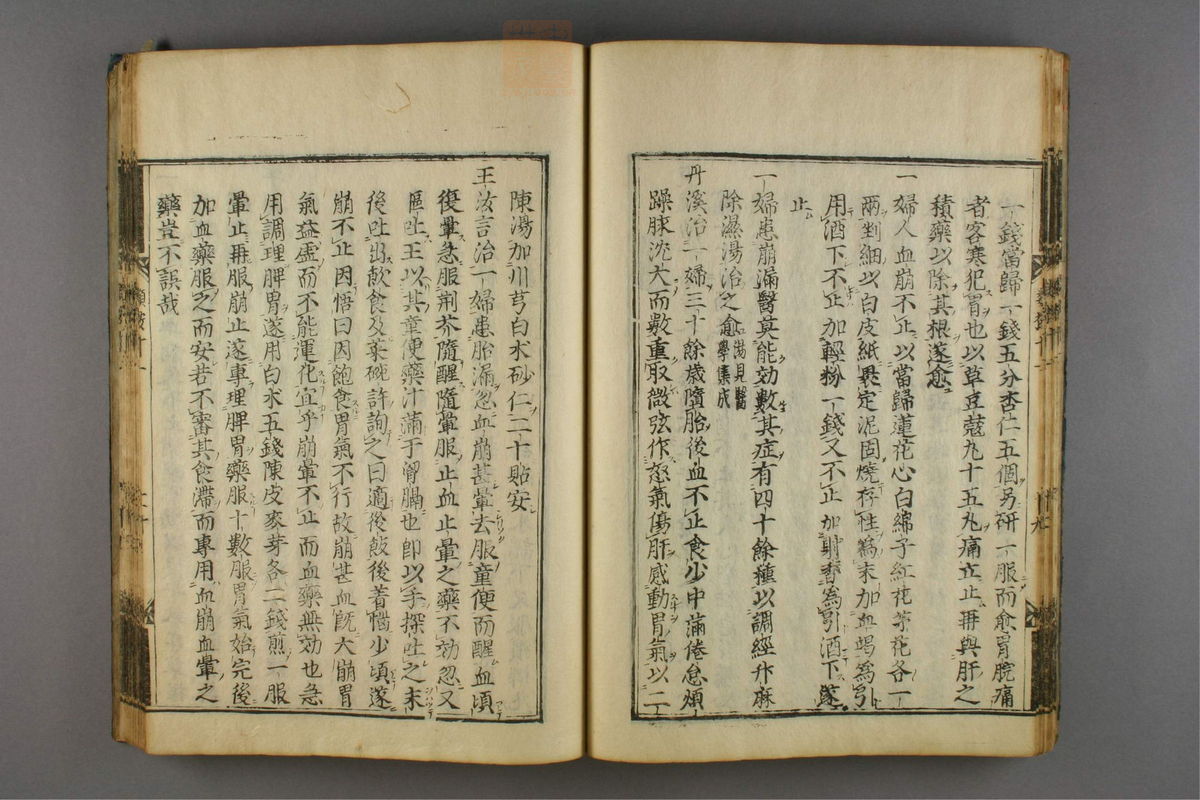 一錢當歸一錢五分杏仁五個另研一服而愈胃脘痛
者客寒犯胃也以草豆蔻丸十五丸痛立止再與肝之
積藥以除其根遂愈
一婦人血崩不止以當歸蓮花心白綿子紅花茅花各一
兩剉細以白皮紙褁定泥固燒存性為末加血竭為引
用酒下不止加輕粉一錢又不止加射香為引酒下遂
止
一婦患崩漏醫莫能効數其症有四十餘種以調經升麻
除濕湯治之愈 湯見醫學集成
丹溪治一婦三十餘歲隨胎後血不止食少中滿倦怠煩
躁脉沈大而數重取微弦作怒氣傷肝感動胃氣以二
陳湯加川芎白朮砂仁二十貼安
王汝言治一婦患胎漏忽血崩甚暈去服童便而醒血頃
復暈急服荆芥隨醒隨暈服止血止暈之藥不効忽又
嘔吐王以其童便藥汁滿于胷膈也即以手探吐之末
後吐出飲食及菜碗許詢之曰適後飯後著惱少頃遂
崩不止因悟曰因飽食胃氣不行故崩甚血既大崩胃
氣益虛而不能運化宜乎崩暈不止而血藥無効也急
用調理脾胃遂用白朮五錢陳皮麥芽各二錢煎一服
暈止再服崩止遂專理脾胃藥服十數服胃氣始完後
加血藥服之而安若不審其食滯而專用血崩血暈之
藥豈不誤哉